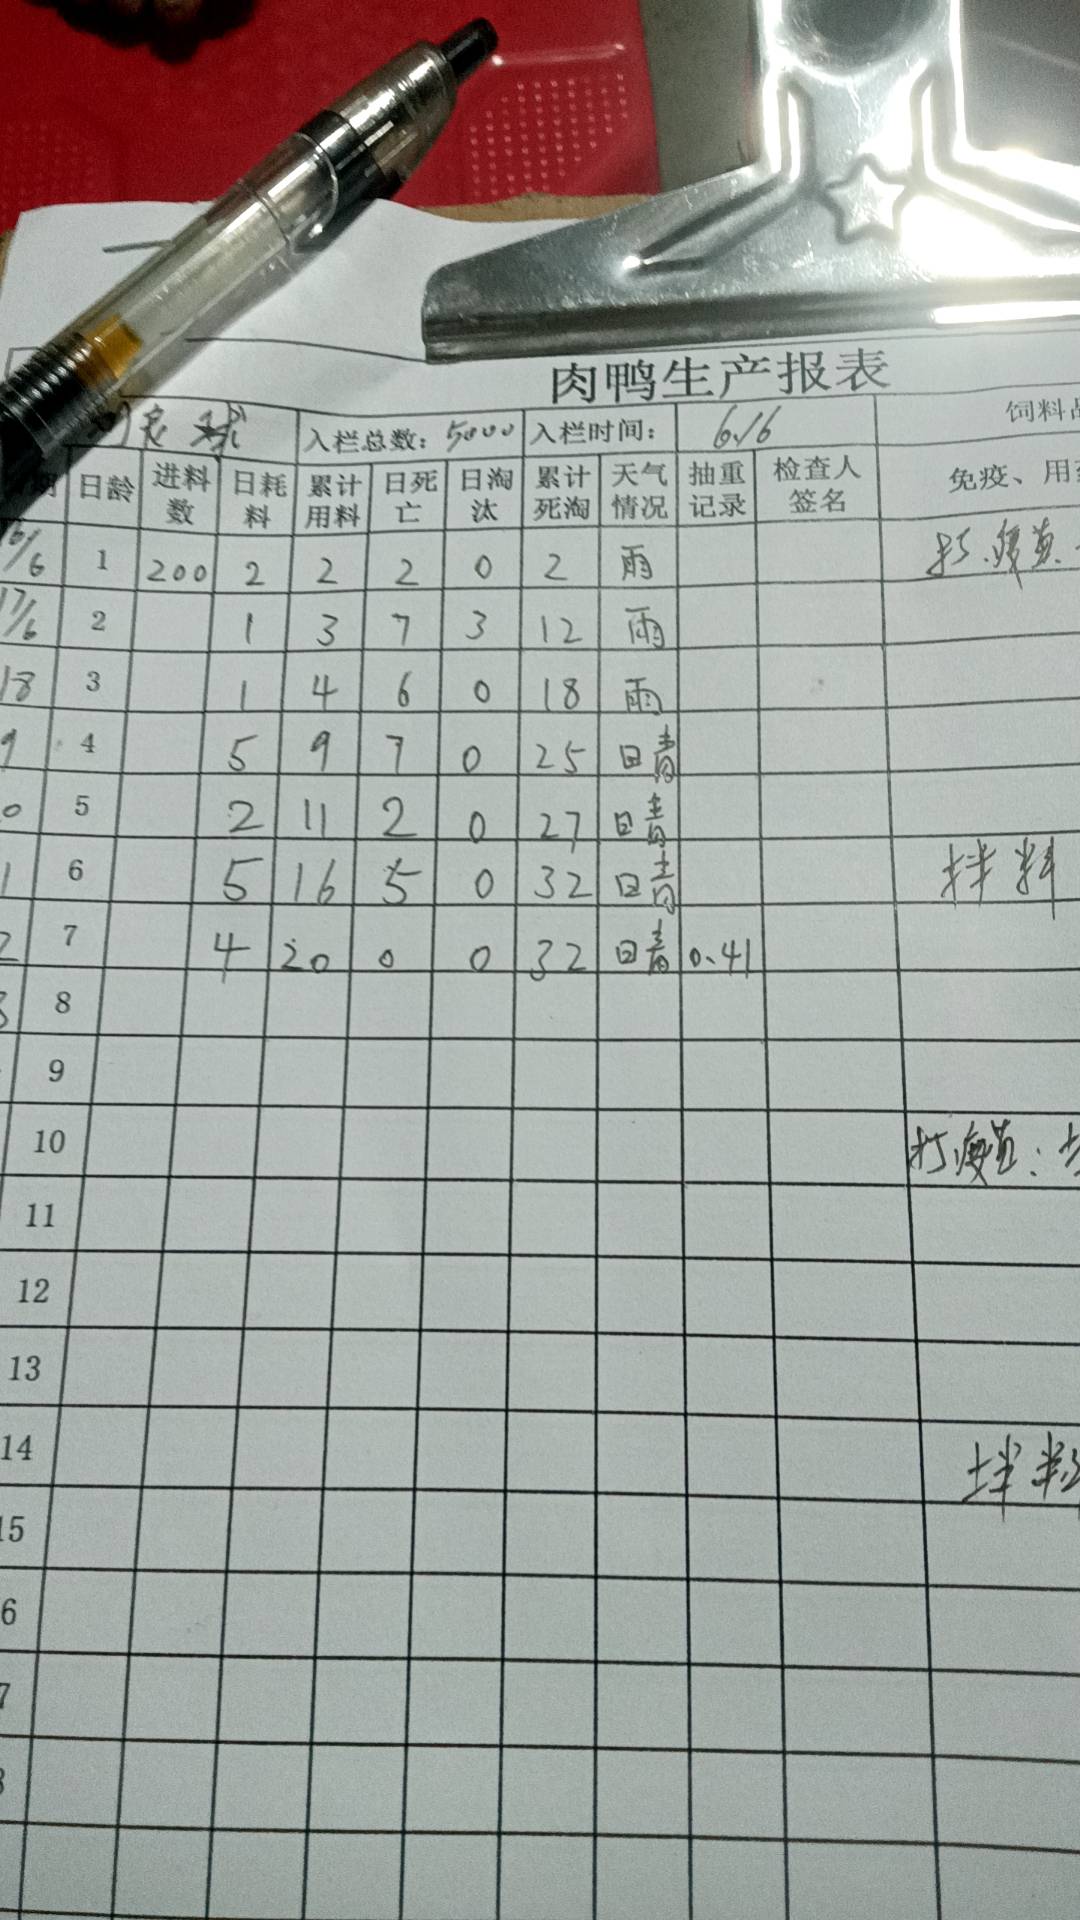 肉鸭生产报表
入栏总数: 5000 入栏时间: 6.16 饲料品
日龄 进料数 日耗料 累计用料 日死亡 日淘汰 累计死淘 天气情况 抽重记录 检查人签名 免疫、用药
16/6 1 200 2 2 2 0 2 雨
17/6 2 1 3 7 3 12 雨
18 3 1 4 6 0 18 雨
9 4 5 9 7 0 25 晴
0 5 2 11 2 0 27 晴
1 6 5 16 5 0 32 晴 拌料
2 7 4 20 0 0 32 晴 0.41
3 8
9
10 打疫苗:
11
12
13
14 拌料
15
6
7
8